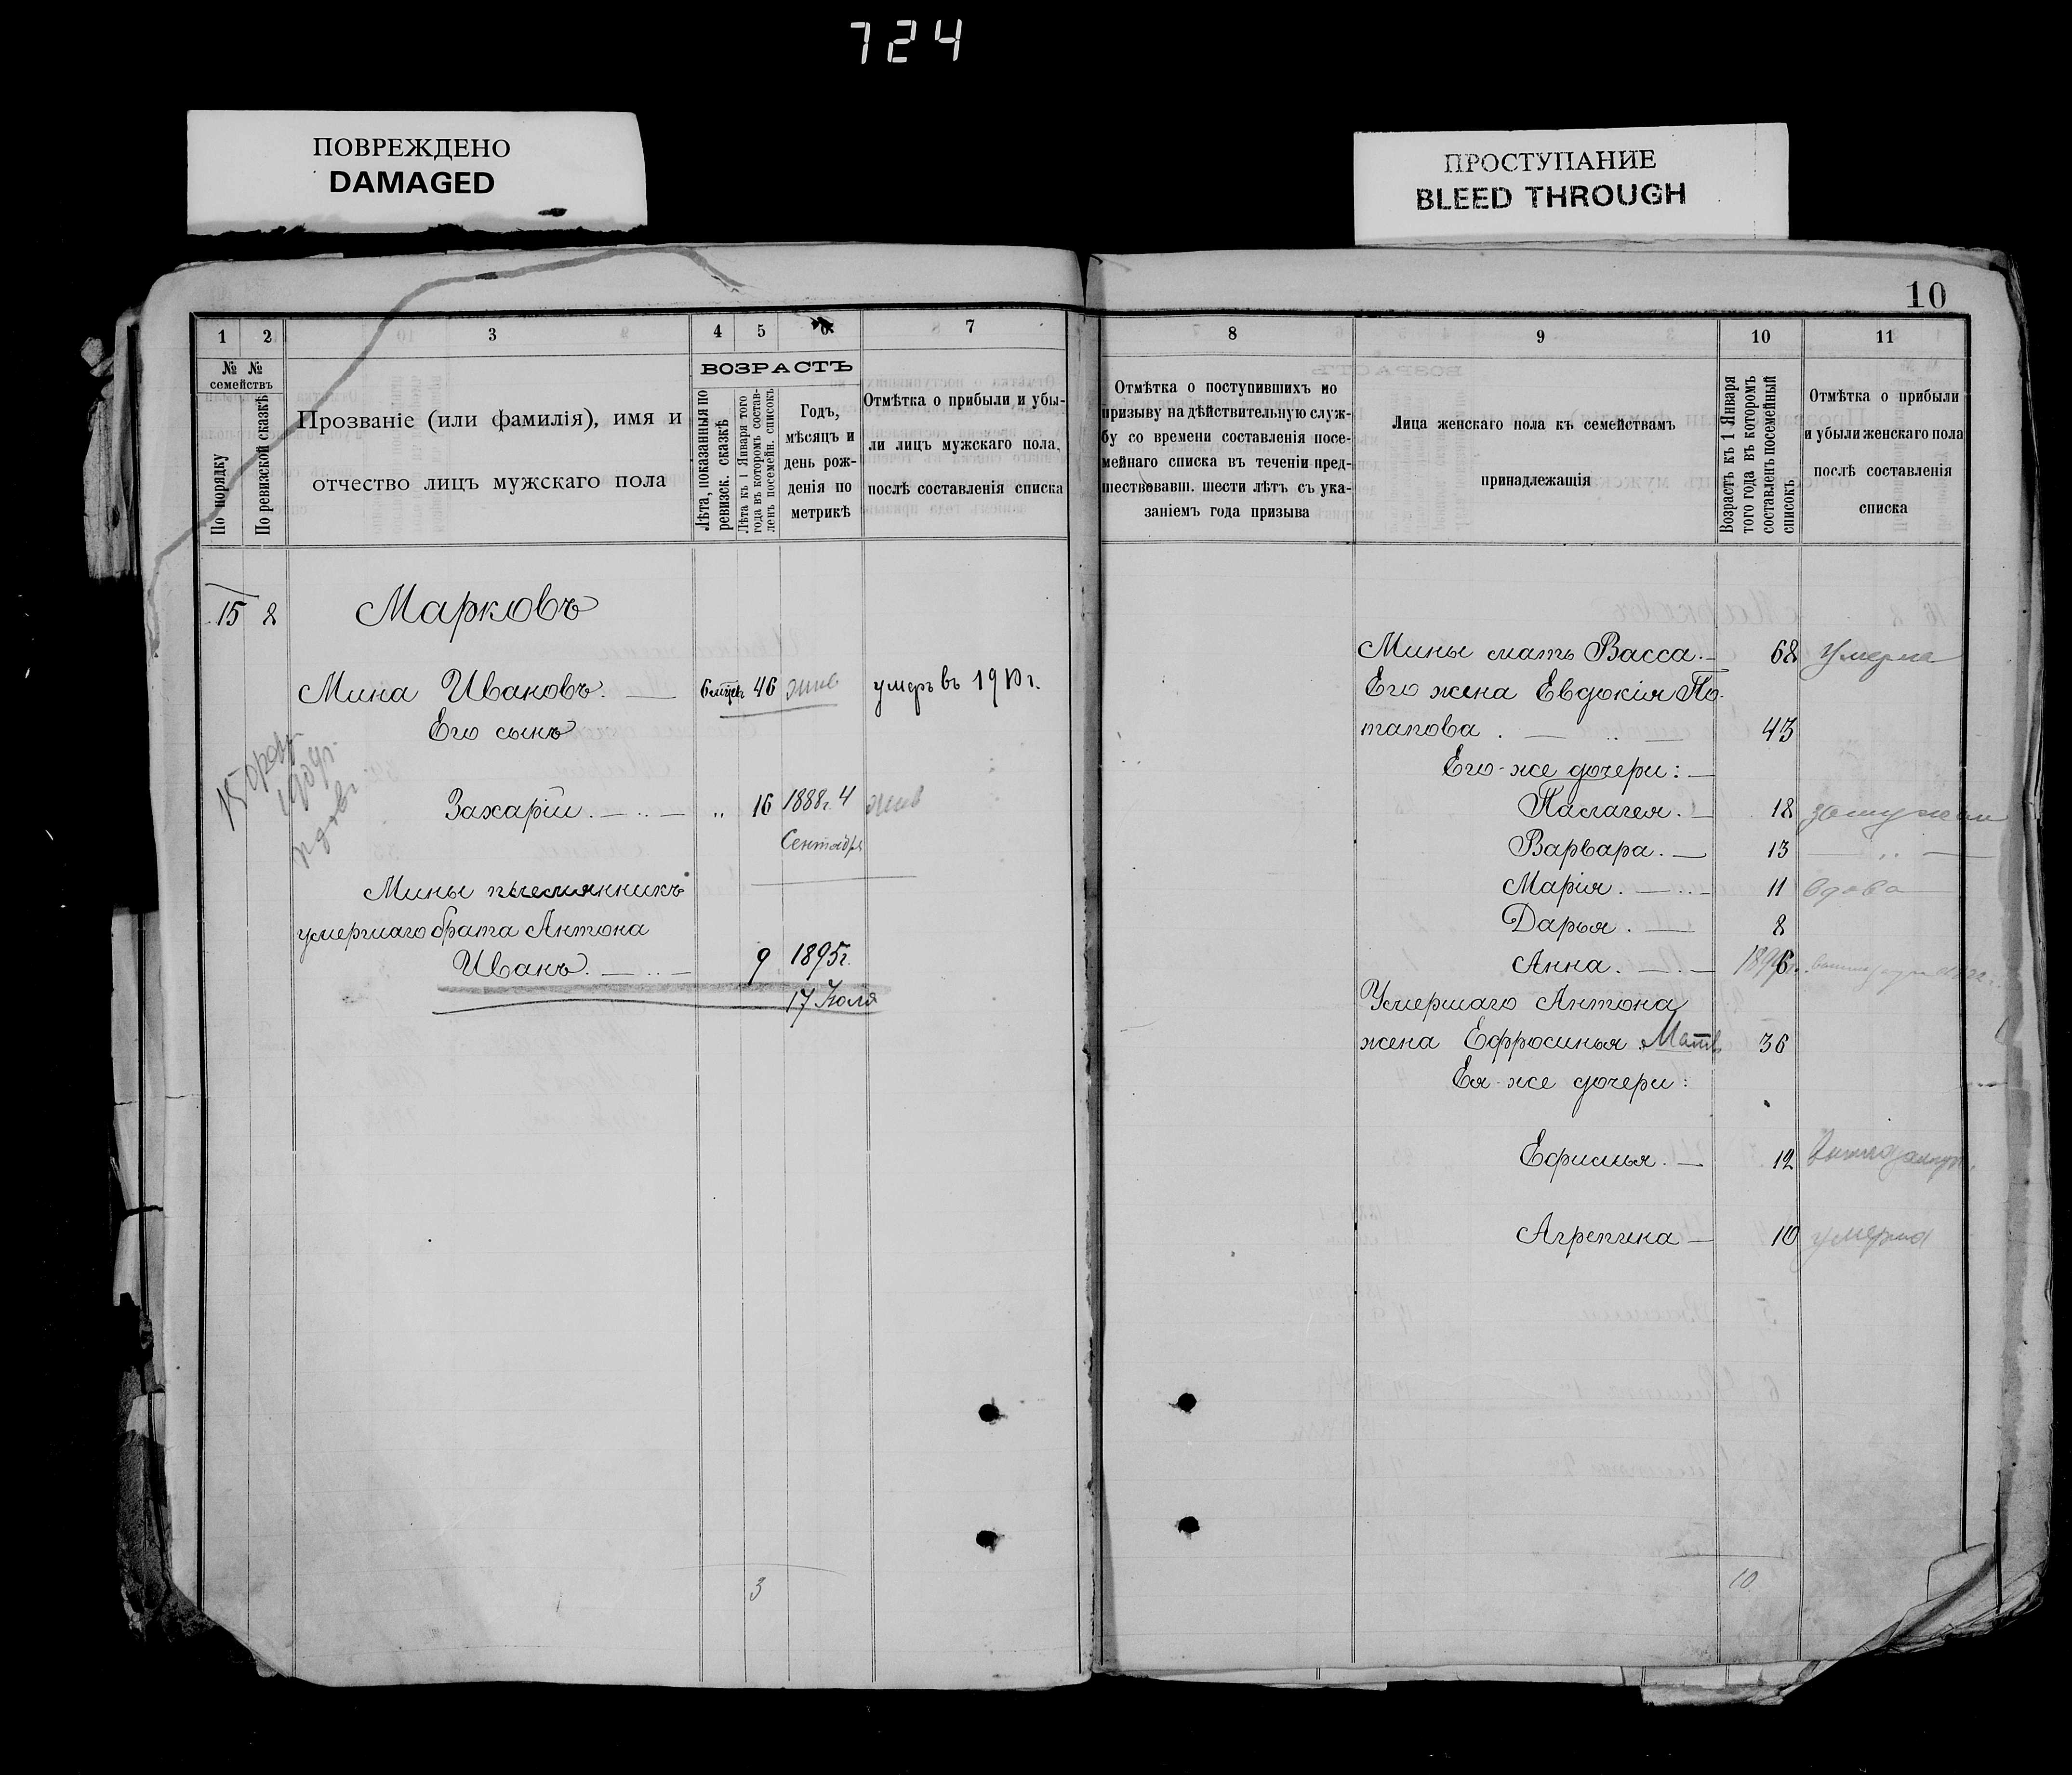 724
ПОВРЕЖДЕНО
DAMAGED
ПРОСТУПАНИЕ
BLEED THROUGH
10
1 2 3 4 5 6 7
№ № семействъ
По порядку
По ревизской сказкѣ
Прозваніе (или фамилія), имя и
отчество лицъ мужскаго пола
ВОЗРАСТЪ
Лѣта, показанныя по
ревизск. сказкѣ
Лѣта къ 1 Января того
года въ которомъ состав-
ленъ посемейн. списокъ
Годъ,
мѣсяцъ и
день рож-
денія по
метрикѣ
Отмѣтка о прибыли и убы-
ли лицъ мужскаго пола,
послѣ составленія списка
15 8 Марковъ
Мина Ивановъ. — 46 жив умеръ въ 1910г.
Его сынъ
Захарій. — .. — „ 16 1888г. 4 жив
Сентября
15
1909г.
Мины племянникъ
умершаго брата Антона
Иванъ. — .. — 9 1895г.
17 Іюля
3
8 9 10 11
Отмѣтка о поступившихъ по
призыву на дѣйствительную служ-
бу со времени составленія посе-
мейнаго списка въ теченіи пред-
шествовавш. шести лѣтъ съ ука-
заніемъ года призыва
Лица женскаго пола къ семействамъ
принадлежащія
Возрастъ къ 1 Января
того года въ которомъ
составленъ посемейный
списокъ
Отмѣтка о прибыли
и убыли женскаго пола
послѣ составленія
списка
Мины мать Васса. — 68 Умерла
Его жена Евдокія По-
тапова . — .. — 43
Его-же дочери: —
Паслагея. — 18 замужем
Варвара. — 13 — .. —
Марія. — .. — 11 вдова
Дарья. — 8
Анна. — . — 6
Умершаго Антона
жена Ефросинья Матв 36
Ея-же дочери:
Ефимья. — 12
Агрепина — 10 умерла
10